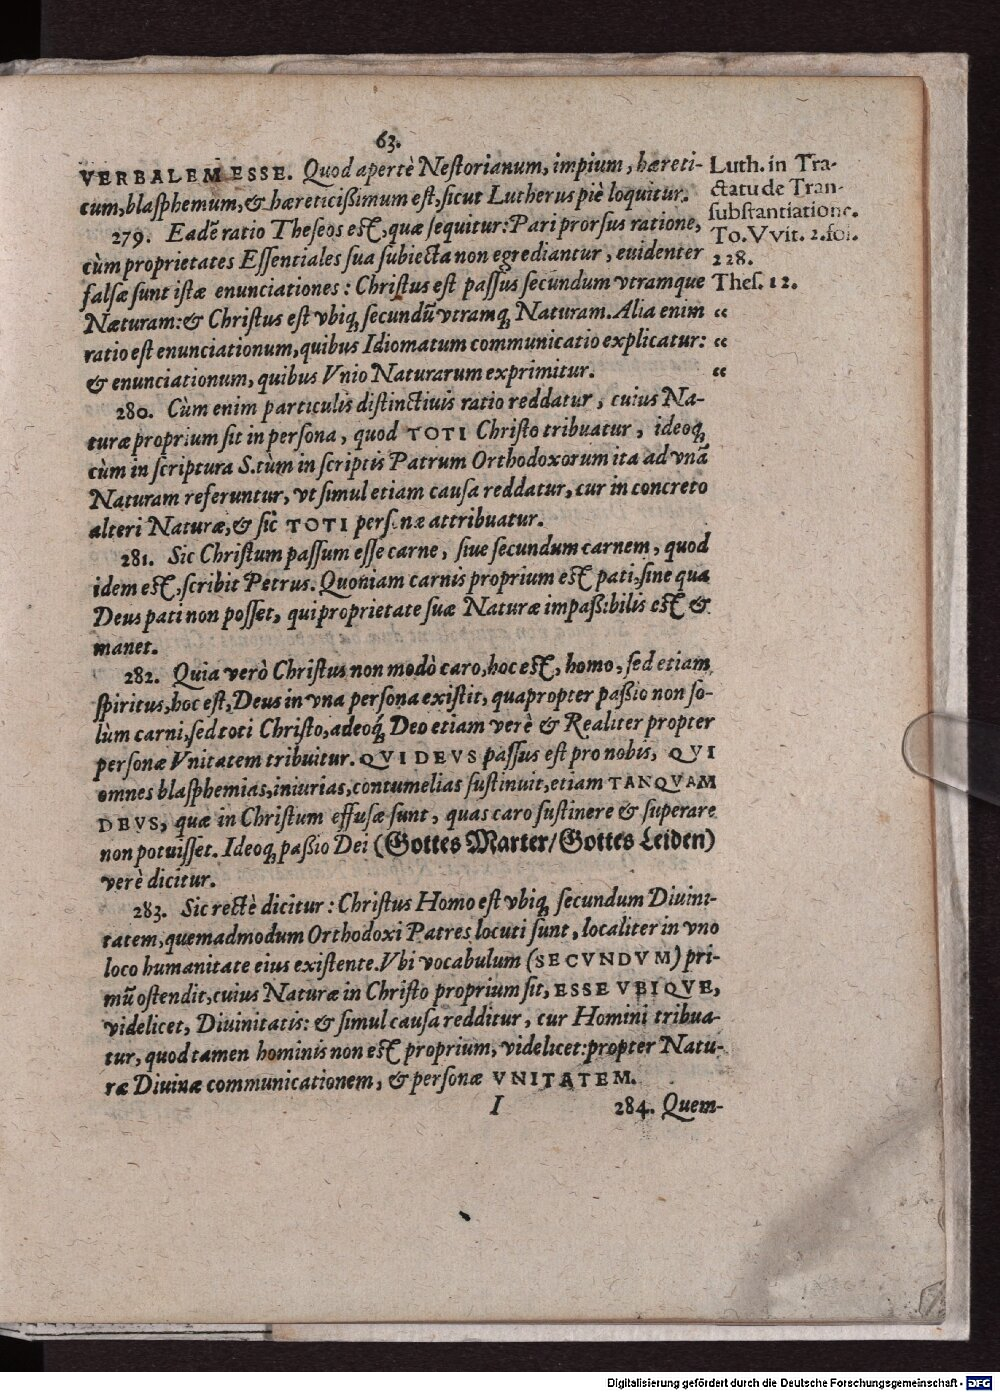 63.
VERBALEM ESSE. Quod apertè Nestorianum, impium, hæreti-
cum, blasphemum, & hæreticißimum est, sicut Lutherus piè loquitur.
Luth. in Tra-
ctatu de Tran-
substantiatione.
To. Vvit. 2. fol.
228.
279. Eadē ratio Theseos est, quæ sequitur: Pari prorsus ratione,
cùm proprietates Essentiales sua subiecta non egrediantur, euidenter
falsæ sunt istæ enunciationes: Christus est passus secundum vtramque
Thes. 12.
Næturam: & Christus est vbiq; secundū vtramq; Naturam. Alia enim “
ratio est enunciationum, quibus Idiomatum communicatio explicatur: “
& enunciationum, quibus Vnio Naturarum exprimitur. “
280. Cùm enim particulis distinctiuis ratio reddatur, cuius Na-
turæ proprium sit in persona, quod TOTI Christo tribuatur, ideoq;
cùm in scriptura S. tùm in scriptis Patrum Orthodoxorum ita ad vnā
Naturam referuntur, vt simul etiam causa reddatur, cur in concreto
alteri Naturæ, & sic TOTI personæ attribuatur.
281. Sic Christum passum esse carne, siue secundum carnem, quod
idem est, scribit Petrus. Quoniam carnis proprium est pati, sine qua
Deus pati non posset, qui proprietate suæ Naturæ impaßibilis est &
manet.
282. Quia verò Christus non modò caro, hoc est, homo, sed etiam
spiritus, hoc est, Deus in vna persona existit, quapropter paßio non so-
lùm carni, sed toti Christo, adeoq́; Deo etiam verè & Realiter propter
personæ Vnitatem tribuitur. QVI DEVS passus est pro nobis, QVI
omnes blasphemias, iniurias, contumelias sustinuit, etiam TANQVAM
DEVS, quæ in Christum effusæ sunt, quas caro sustinere & superare
non potuisset. Ideoq; paßio Dei (Gottes Marter/ Gottes Leiden)
verè dicitur.
283. Sic rectè dicitur: Christus Homo est vbiq; secundum Diuini-
tatem, quemadmodum Orthodoxi Patres locuti sunt, localiter in vno
loco humanitate eius existente. Vbi vocabulum (SECVNDVM) pri-
mū ostendit, cuius Naturæ in Christo proprium sit, ESSE VBIQVE,
videlicet, Diuinitatis: & simul causa redditur, cur Homini tribua-
tur, quod tamen hominis non est proprium, videlicet: propter Natu-
ræ Diuinæ communicationem, & personæ VNITATEM.
I 284. Quem-
Digitalisierung gefördert durch die Deutsche Forschungsgemeinschaft - DFG